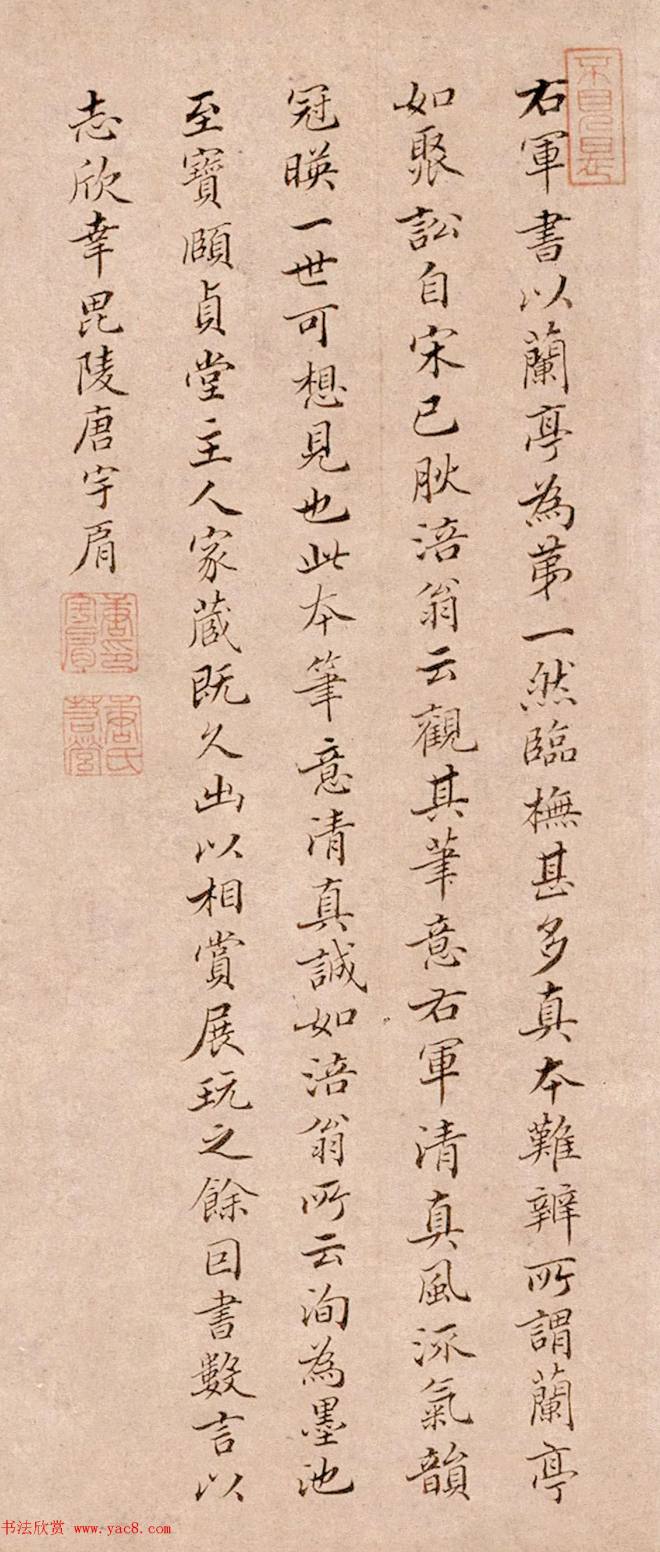 右軍書以蘭亭為苐一然臨橅甚多真本難辨所謂蘭亭
如聚訟自宋已耿涪翁云觀其筆意右軍清真風流氣韻
冠暎一世可想見也此本筆意清真誠如涪翁所云洵為墨池
至寶頤貞堂主人家藏既久出以相賞展玩之餘因書數言以
志欣幸毘陵唐宇肩
书法欣赏 www.yac8.com